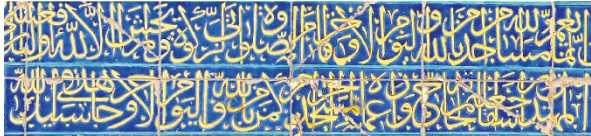 إنما يعمر مساجد الله من آمن بالله واليوم الآخر وأقام الصلوة وآتى الزكوة ولم يخش إلا الله فعسى
المهتدين أجعلتم سقاية الحاج وعمارة المسجد الحرام كمن آمن بالله واليوم الآخر وجاهد في سبيل الله